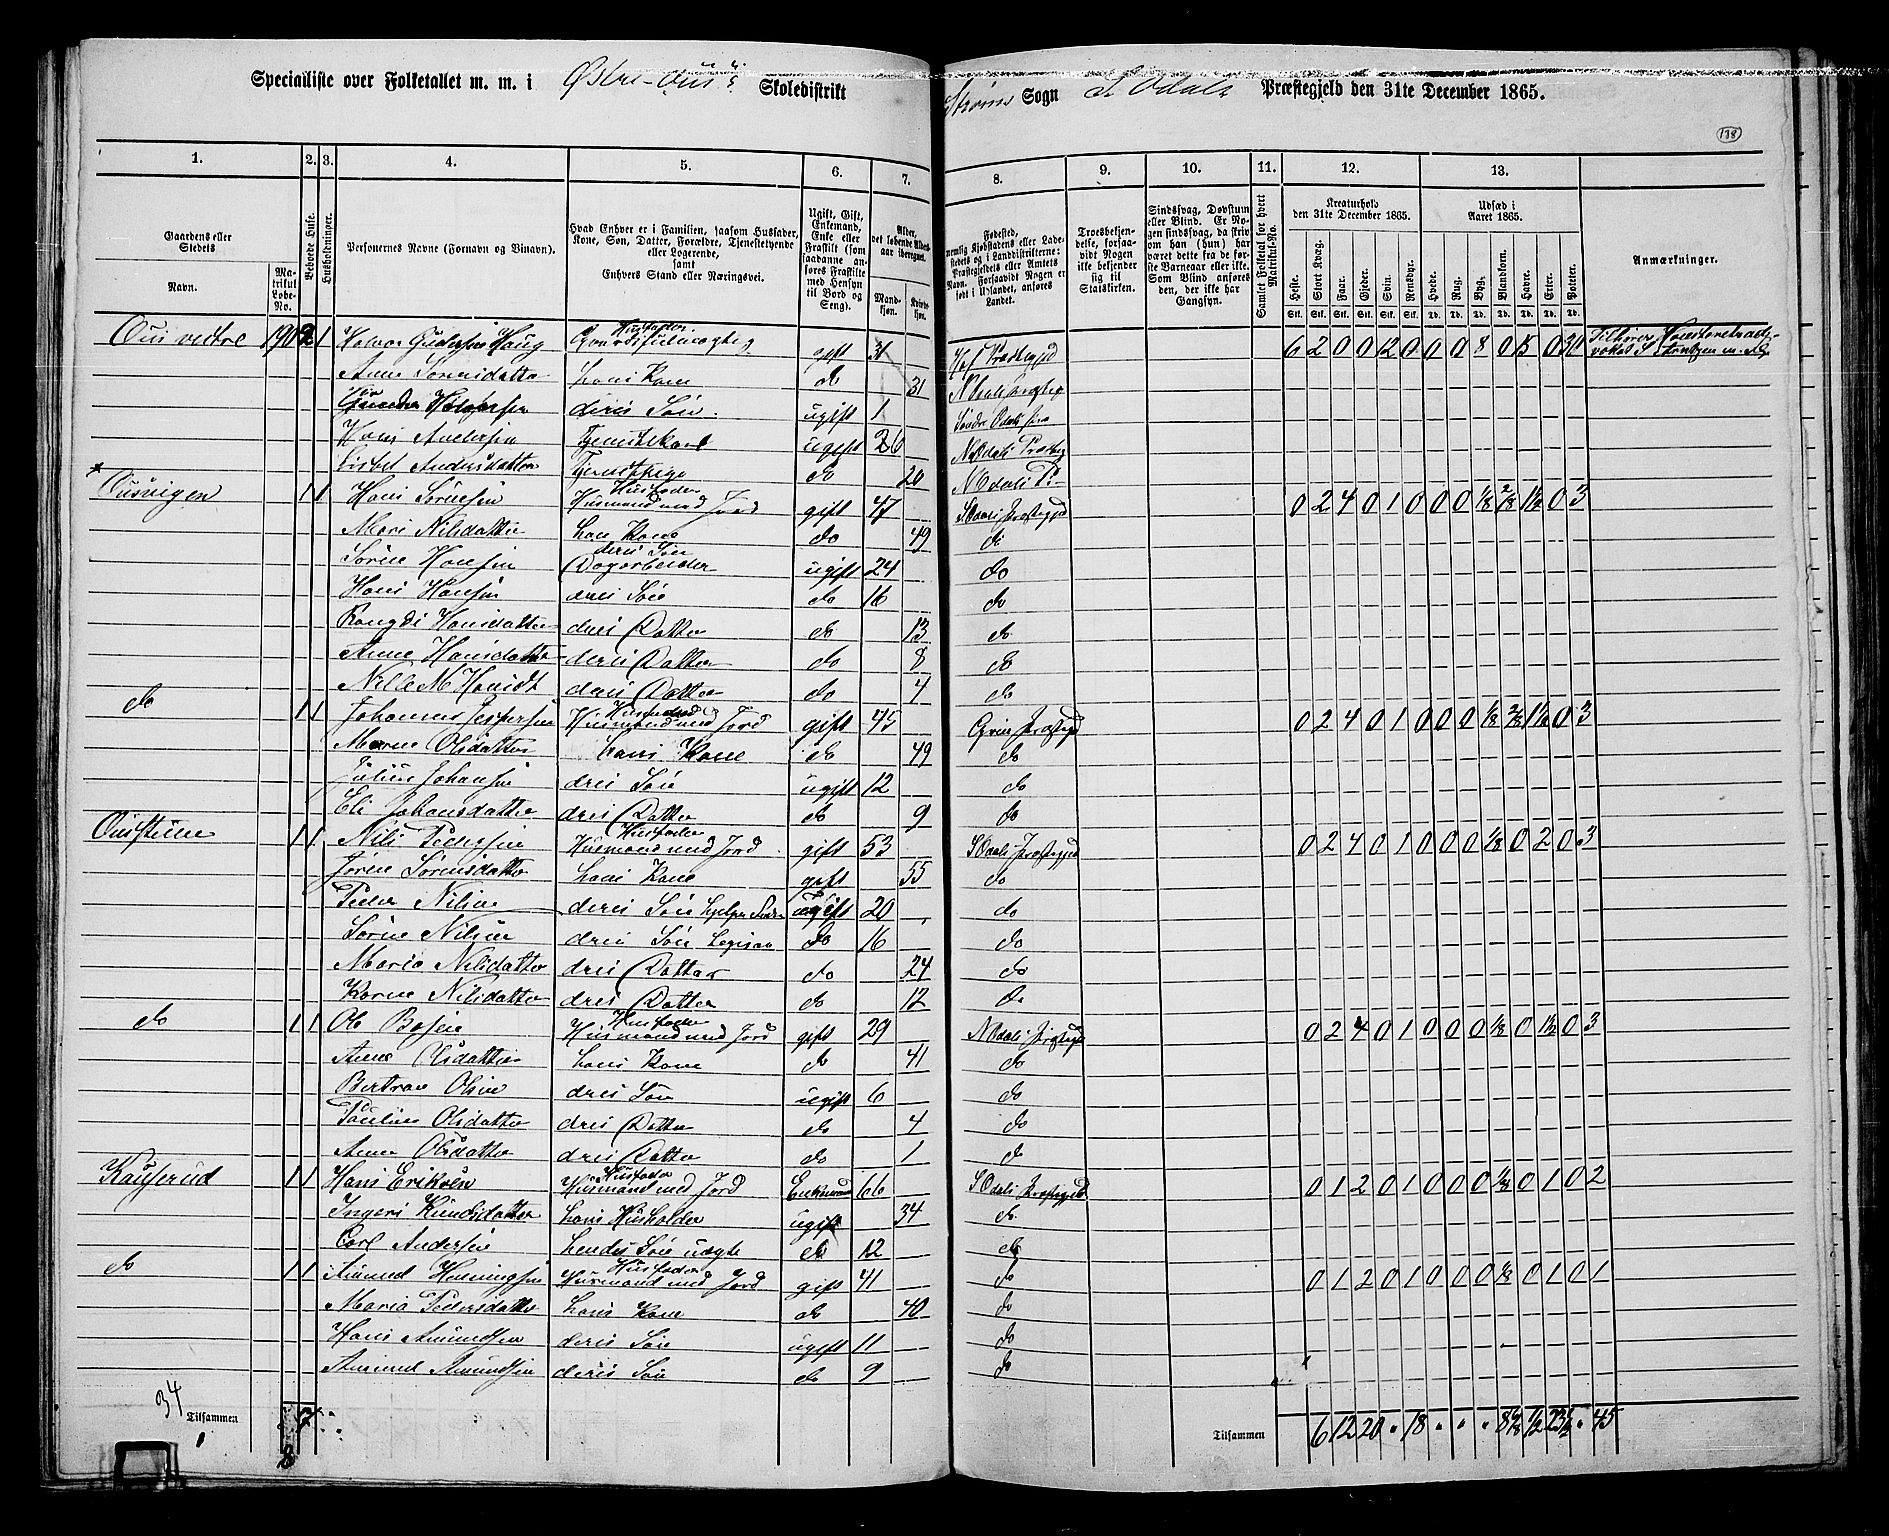 Specialliste over Folketallet m. m. i Østre-Ouss Skoledistrikt Strøms Sogn S. Odals Præstegjeld den 31te December 1865.
138
1. 2. 3. 4. 5. 6. 7. 8. 9. 10. 11. 12. 13.
Gaardens eller Stedets Navn.
Matrikul Løbe-No.
Beboede Huse.
Husholdninger.
Personernes Navne (Fornavn og Tilnavn).
Hvad Enhver er i Familien, saasom Husfader, Kone, Søn, Datter, Forældre, Tjenestetyende eller Logerende, samt Enhvers Stand eller Næringsvei.
Ugift, Gift, Enkemand, Enke eller Fraskilt (som saadanne anføres Fraskilte med Hensyn til Bord og Seng).
Alder, det løbende Aldersaar iberegnet.
Mandkjøn. Kvindekjøn.
Fødested,
Troesbekjendelse, forsaavidt Nogen ikke bekjender sig til Statskirken.
Sindssvag, Døvstum eller Blind. Er Nogen sindssvag, da skrives om han (hun) har været dette fra de første Barneaar eller ikke. Som Blind anføres den, der ikke har Gangsyn.
Samlet Folketal for hvert Matrikul-No.
Kreaturhold den 31te December 1865.
Heste. Stort Kvæg. Faar. Gjeder. Svin. Rensdyr.
Udsæd i Aaret 1865.
Hvede. Rug. Byg. Blandkorn. Havre. Erter. Poteter.
Anmærkninger.
Ous vestre 190 2 1 Halvor Gudersen Haug Husfader Gaardsfuldmægtig gift 31 Hof Præstegjed 6 2 0 0 12 0 0 0 8 0 15 0 30 Tilhører
Anne Sørensdatter hans Kone do 31
Halvorsen deres Søn ugift 1 Søndre Odals
Hans Andersen Tjenestekarl ugift 26 N Odals
Lisbet Andersdatter do 20 N Odals P.
Ousvigen 1 1 Hans Sørensen Husfader Husmand med Jord gift 47 S Odals Præstegjed 0 2 4 0 1 0 0 0 1/8 2/8 1½ 0 3
Mari Nilsdatter hans Kone do 49 do
Sørne Hansen deres Søn Dagarbeider ugift 24 do
Hans Hansen deres Søn do 16 do
Rangdi Hansdatter deres Datter do 13 do
Anne Hansdatter deres Datter do 8 do
Nille M Hansdt deres Datter do 4 do
do 1 1 Johannes Jespersen Husfader Husmand med Jord gift 45 Grue Præstegjed 0 2 4 0 1 0 0 0 1/8 2/8 1½ 0 3
Marne Olsdatter hans Kone do 49 do
Julius Johansen deres Søn ugift 12 do
Eli Johansdatter deres Datter do 9 do
1 1 Nils Pedersen Husfader Husmand med Jord gift 53 S Odals Præstegjed 0 2 4 0 1 0 0 0 1/8 0 2 0 3
Jøren Sørensdatter hans Kone gift 55 do
Peder Nilsen deres Søn hjelper Faderen ugift 20 do
Sørne Nilsen deres Søn do 16 do
Maria Nilsdatter deres Datter do 24 do
Karne Nilsdatter deres Datter do 12 do
do 1 1 Ole Husfader Husmand med Jord gift 29 N Odals Præstegjed 0 2 4 0 1 0 0 0 1/8 0 1½ 0 3
Anne Olsdatter hans Kone do 41 do
Olsen deres Søn ugift 6 do
Pauline Olsdatter deres Datter do 4 do
Anne Olsdatter deres Datter do 1 do
Kauserud 1 1 Hans Eriksen Husfader Husmand med Jord Enkemand 66 S Odals Præstegjed 0 1 2 0 1 0 0 0 1/8 0 1 0 2
Ingeri Knudsdatter hans Husholder ugift 34 do
Carl Andersen hendes Søn uægte do 12 do
do 1 1 Amund Husfader Husmand med Jord gift 41 do 0 1 2 0 1 0 0 0 1/8 0 1 0 1
Maria Pedersdatter hans Kone do 40 do
Hans Amundsen deres Søn ugift 11 do
Amund Amundsen deres Søn do 9 do
34
Tilsammen 7
8
Tilsammen 6 12 20 " 18 " " " 8 6/8 1/2 23½ " 45